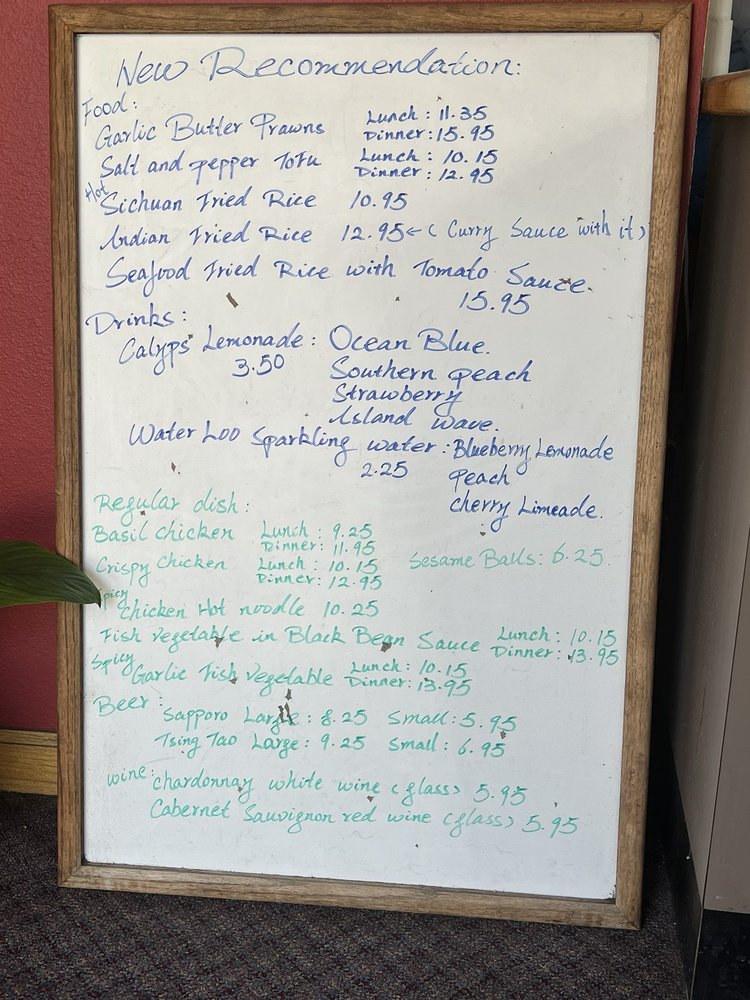 New Recommendation:
Food:
Garlic Butter Prawns Lunch: 11.35
Dinner: 15.95
Salt and pepper Tofu Lunch: 10.15
Dinner: 12.95
Hot Sichuan Fried Rice 10.95
Indian Fried Rice 12.95 ← (Curry Sauce with it)
Seafood Fried Rice with Tomato Sauce.
15.95
Drinks:
Calyps Lemonade: Ocean Blue.
3.50 Southern peach
Strawberry
Island wave.
Water Loo Sparkling water: Blueberry Lemonade
2.25 Peach
cherry Limeade.
Regular dish:
Basil chicken Lunch: 9.25
Dinner: 11.95
Crispy chicken Lunch: 10.15 Sesame Balls: 6.25
Dinner: 12.95
Spicy chicken Hot noodle 10.25
Fish vegetable in Black Bean Sauce Lunch: 10.15
Dinner: 13.95
Spicy Garlic Fish vegetable Lunch: 10.15
Dinner: 13.95
Beer:
Sapporo Large: 8.25 Small: 5.95
Tsing Tao Large: 9.25 Small: 6.95
wine: chardonnay white wine (glass) 5.95
Cabernet Sauvignon red wine (glass) 5.95